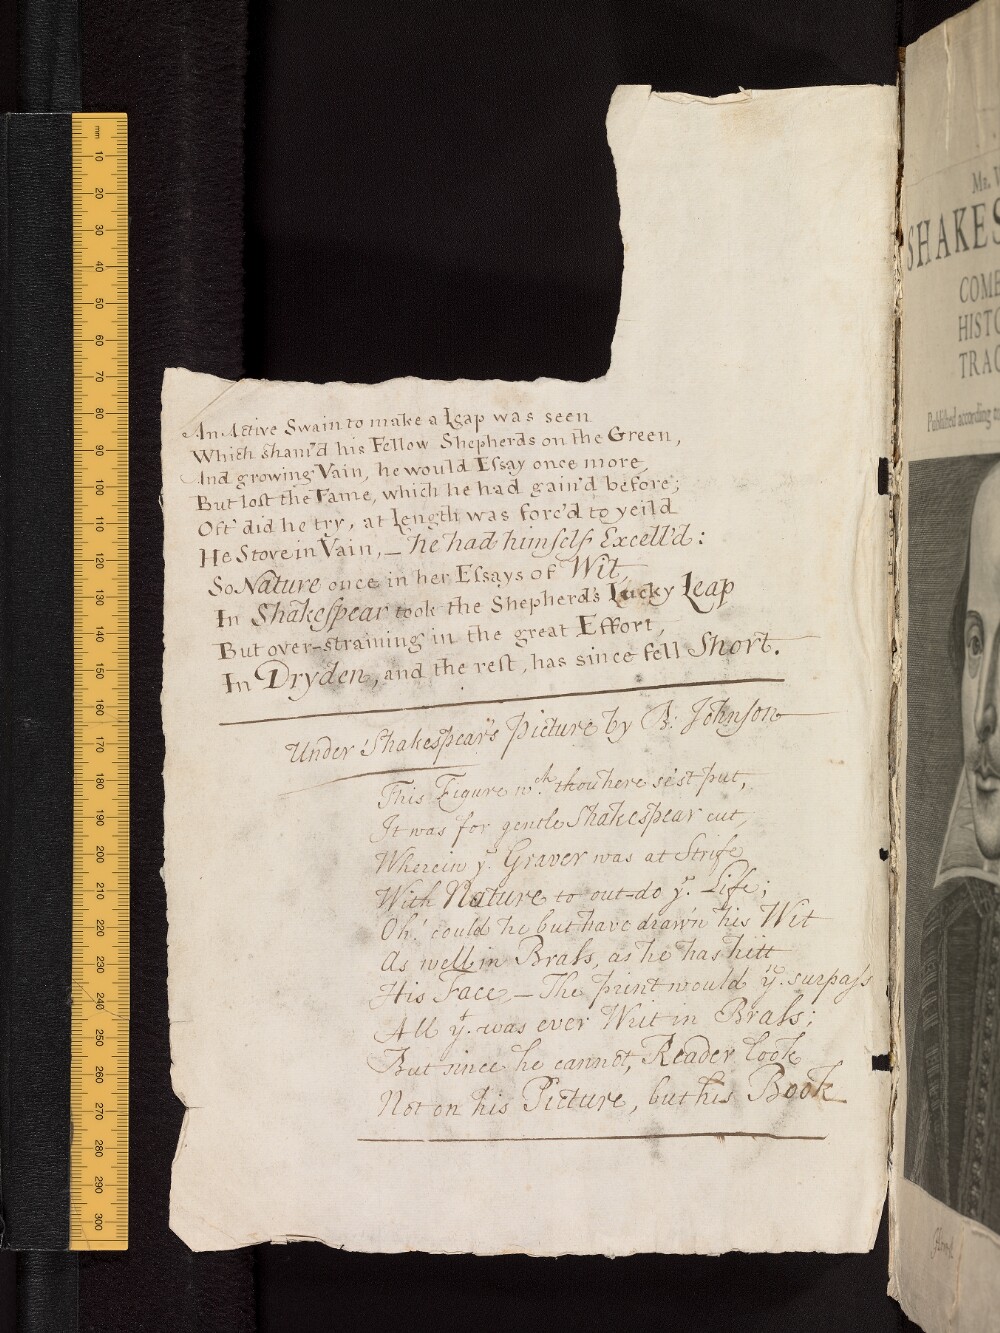 An Active Swain to make a Leap was seen
Which sham'd his Fellow Shepherds on the Green,
And growing Vain, he would Essay once more,
But lost the Fame, which he had gain'd before;
Oft' did he try, at Length was forc'd to yeild
He Stove in Vain, — he had himself Excell'd:
So Nature once in her Essays of Wit,
In Shakespear took the Shepherd's Lucky Leap
But over-straining in the great Effort,
In Dryden, and the rest, has since fell Short.
Under Shakespear's Picture by B: Johnson
This Figure wch. thou here se'st put,
It was for gentle Shakespear cut,
Wherein ye. Graver was at Strife
With Nature to out-do ye. Life;
Oh! could he but have drawn his Wit
As well in Brass, as he has hitt
His Face — The print would yn. surpass
All yt. was ever Writ in Brass;
But since he cannot, Reader look
Not on his Picture, but his Book
Mr.
SHAKES
COME
HISTO
TRAG
Published according
mm 10 20 30 40 50 60 70 80 90 100 110 120 130 140 150 160 170 180 190 200 210 220 230 240 250 260 270 280 290 300